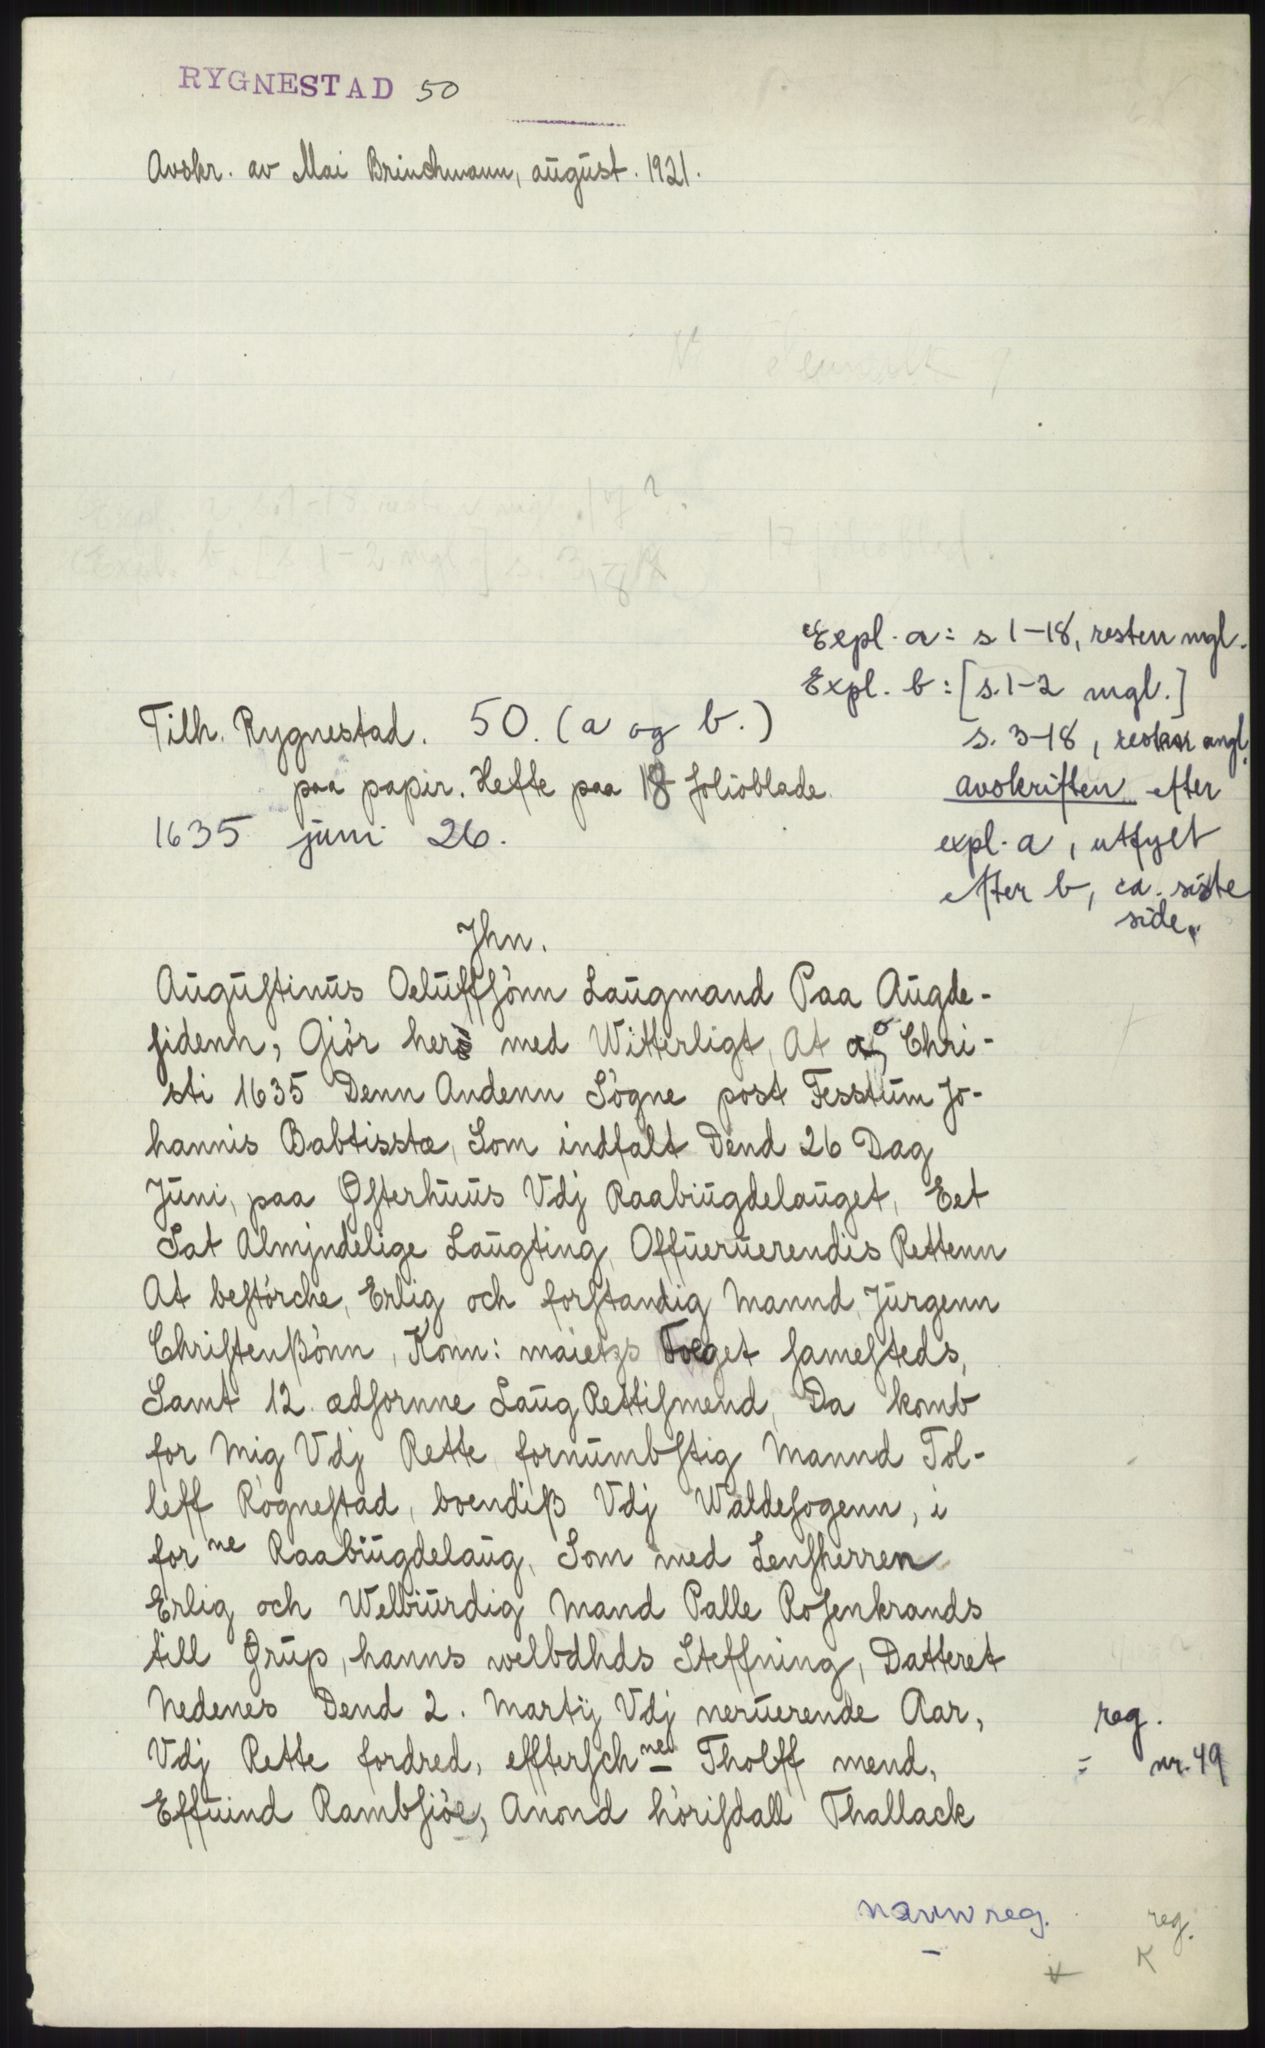 RYGNESTAD 50
Avskr. av Mai Brinchmann, august. 1921.
Expl. a: s 1-18, resten mgl.
Expl. b: [s. 1-2 mgl.]
s. 3-18, resten mgl.
avskriften efter
expl. a, utfylt
efter b, ca. siste
side.
Tilh. Rygnestad. 50. (a og b.)
paa papir. Hefte paa 18 folioblade.
1635 juni 26.
Jhn.
Augustinus Oeluffsönn Laugmand Paa Augde-
sidenn, Giör her med Witterligt, At ao Chri-
sti 1635 Denn Andenn Sögne post Fesstum Jo-
hannis Babtisstæ, Som indfalt Dend 26 Dag
Juni, paa Østerhuus Vdj Raabiugdelauget, Eet
Sat Almjndelige Laugting, Offueruerendis Rettenn
At bestörche, Erlig och forstandig Mannd, Jürgenn
Christenßönn, Konn: maietzs Foeget samesteds,
Samt 12. ædsornne Laug Rettismend, Da komb
for Mig Vdj Rette fornumbstig Mannd Tol-
leff Rögnestad, boendiß Vdj Waldesogenn, i
for ne Raabiugdelaug, Som med Lensherren
Erlig och Welbiurdig Mand Palle Rosenkrands
till Ørup, hanns welbdhds Steffning, Datteret
Nedenes Dend 2. Martij Vdj neruerende Aar,
Vdj Rette fordred, efftersch nes Tholff mend,
Effuind Rambsiöe, Anond hörisdall Thallack
reg.
= nr. 49
navnreg.
reg.
K